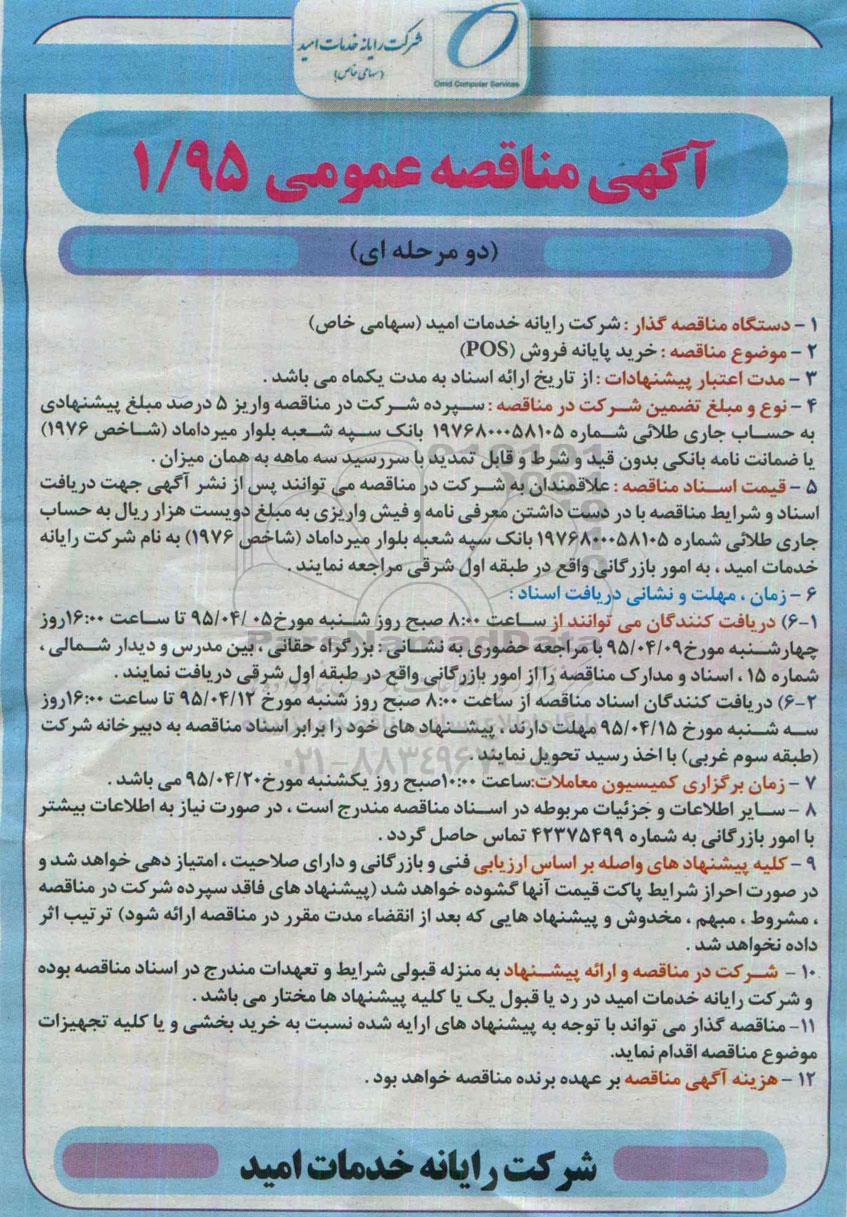 شرکت رایانه خدمات امید
(سهامی خاص)
Omid Computer Services
آگهی مناقصه عمومی ۱/۹۵
(دو مرحله ای)
۱ - دستگاه مناقصه گذار : شرکت رایانه خدمات امید (سهامی خاص)
۲ - موضوع مناقصه : خرید پایانه فروش (POS)
۳ - مدت اعتبار پیشنهادات : از تاریخ ارائه اسناد به مدت یکماه می باشد .
۴ - نوع و مبلغ تضمین شرکت در مناقصه : سپرده شرکت در مناقصه واریز ۵ درصد مبلغ پیشنهادی
به حساب جاری طلائی شماره ۱۹۷۶۸۰۰۰۵۸۱۰۵ بانک سپه شعبه بلوار میرداماد (شاخص ۱۹۷۶)
یا ضمانت نامه بانکی بدون قید و شرط و قابل تمدید با سررسید سه ماهه به همان میزان .
۵ - قیمت اسناد مناقصه : علاقمندان به شرکت در مناقصه می توانند پس از نشر آگهی جهت دریافت
اسناد و شرایط مناقصه با در دست داشتن معرفی نامه و فیش واریزی به مبلغ دویست هزار ریال به حساب
جاری طلائی شماره ۱۹۷۶۸۰۰۰۵۸۱۰۵ بانک سپه شعبه بلوار میرداماد (شاخص ۱۹۷۶) به نام شرکت رایانه
خدمات امید ، به امور بازرگانی واقع در طبقه اول شرقی مراجعه نمایند .
۶ - زمان ، مهلت و نشانی دریافت اسناد :
۶-۱) دریافت کنندگان می توانند از ساعت ۸:۰۰ صبح روز شنبه مورخ۰۵ /۹۵/۰۴ تا ساعت ۱۶:۰۰روز
چهارشنبه مورخ۹۵/۰۴/۰۹ با مراجعه حضوری به نشانی : بزرگراه حقانی ، بین مدرس و دیدار شمالی ،
شماره ۱۵ ، اسناد و مدارک مناقصه را از امور بازرگانی واقع در طبقه اول شرقی دریافت نمایند .
۶-۲) دریافت کنندگان اسناد مناقصه از ساعت ۸:۰۰ صبح روز شنبه مورخ ۹۵/۰۴/۱۲ تا ساعت ۱۶:۰۰روز
سه شنبه مورخ ۹۵/۰۴/۱۵ مهلت دارند ، پیشنهاد های خود را برابر اسناد مناقصه به دبیرخانه شرکت
(طبقه سوم غربی) با اخذ رسید تحویل نمایند .
۷ - زمان برگزاری کمیسیون معاملات:ساعت ۱۰:۰۰صبح روز یکشنبه مورخ۹۵/۰۴/۲۰ می باشد .
۸ - سایر اطلاعات و جزئیات مربوطه در اسناد مناقصه مندرج است ، در صورت نیاز به اطلاعات بیشتر
با امور بازرگانی به شماره ۴۲۳۷۵۴۹۹ تماس حاصل گردد .
۹ - کلیه پیشنهاد های واصله بر اساس ارزیابی فنی و بازرگانی و دارای صلاحیت ، امتیاز دهی خواهد شد و
در صورت احراز شرایط پاکت قیمت آنها گشوده خواهد شد (پیشنهاد های فاقد سپرده شرکت در مناقصه
، مشروط ، مبهم ، مخدوش و پیشنهاد هایی که بعد از انقضاء مدت مقرر در مناقصه ارائه شود) ترتیب اثر
داده نخواهد شد .
۱۰ - شرکت در مناقصه و ارائه پیشنهاد به منزله قبولی شرایط و تعهدات مندرج در اسناد مناقصه بوده
و شرکت رایانه خدمات امید در رد یا قبول یک یا کلیه پیشنهاد ها مختار می باشد .
۱۱- مناقصه گذار می تواند با توجه به پیشنهاد های ارایه شده نسبت به خرید بخشی و یا کلیه تجهیزات
موضوع مناقصه اقدام نماید.
۱۲ - هزینه آگهی مناقصه بر عهده برنده مناقصه خواهد بود .
شرکت رایانه خدمات امید
ParsNamadData